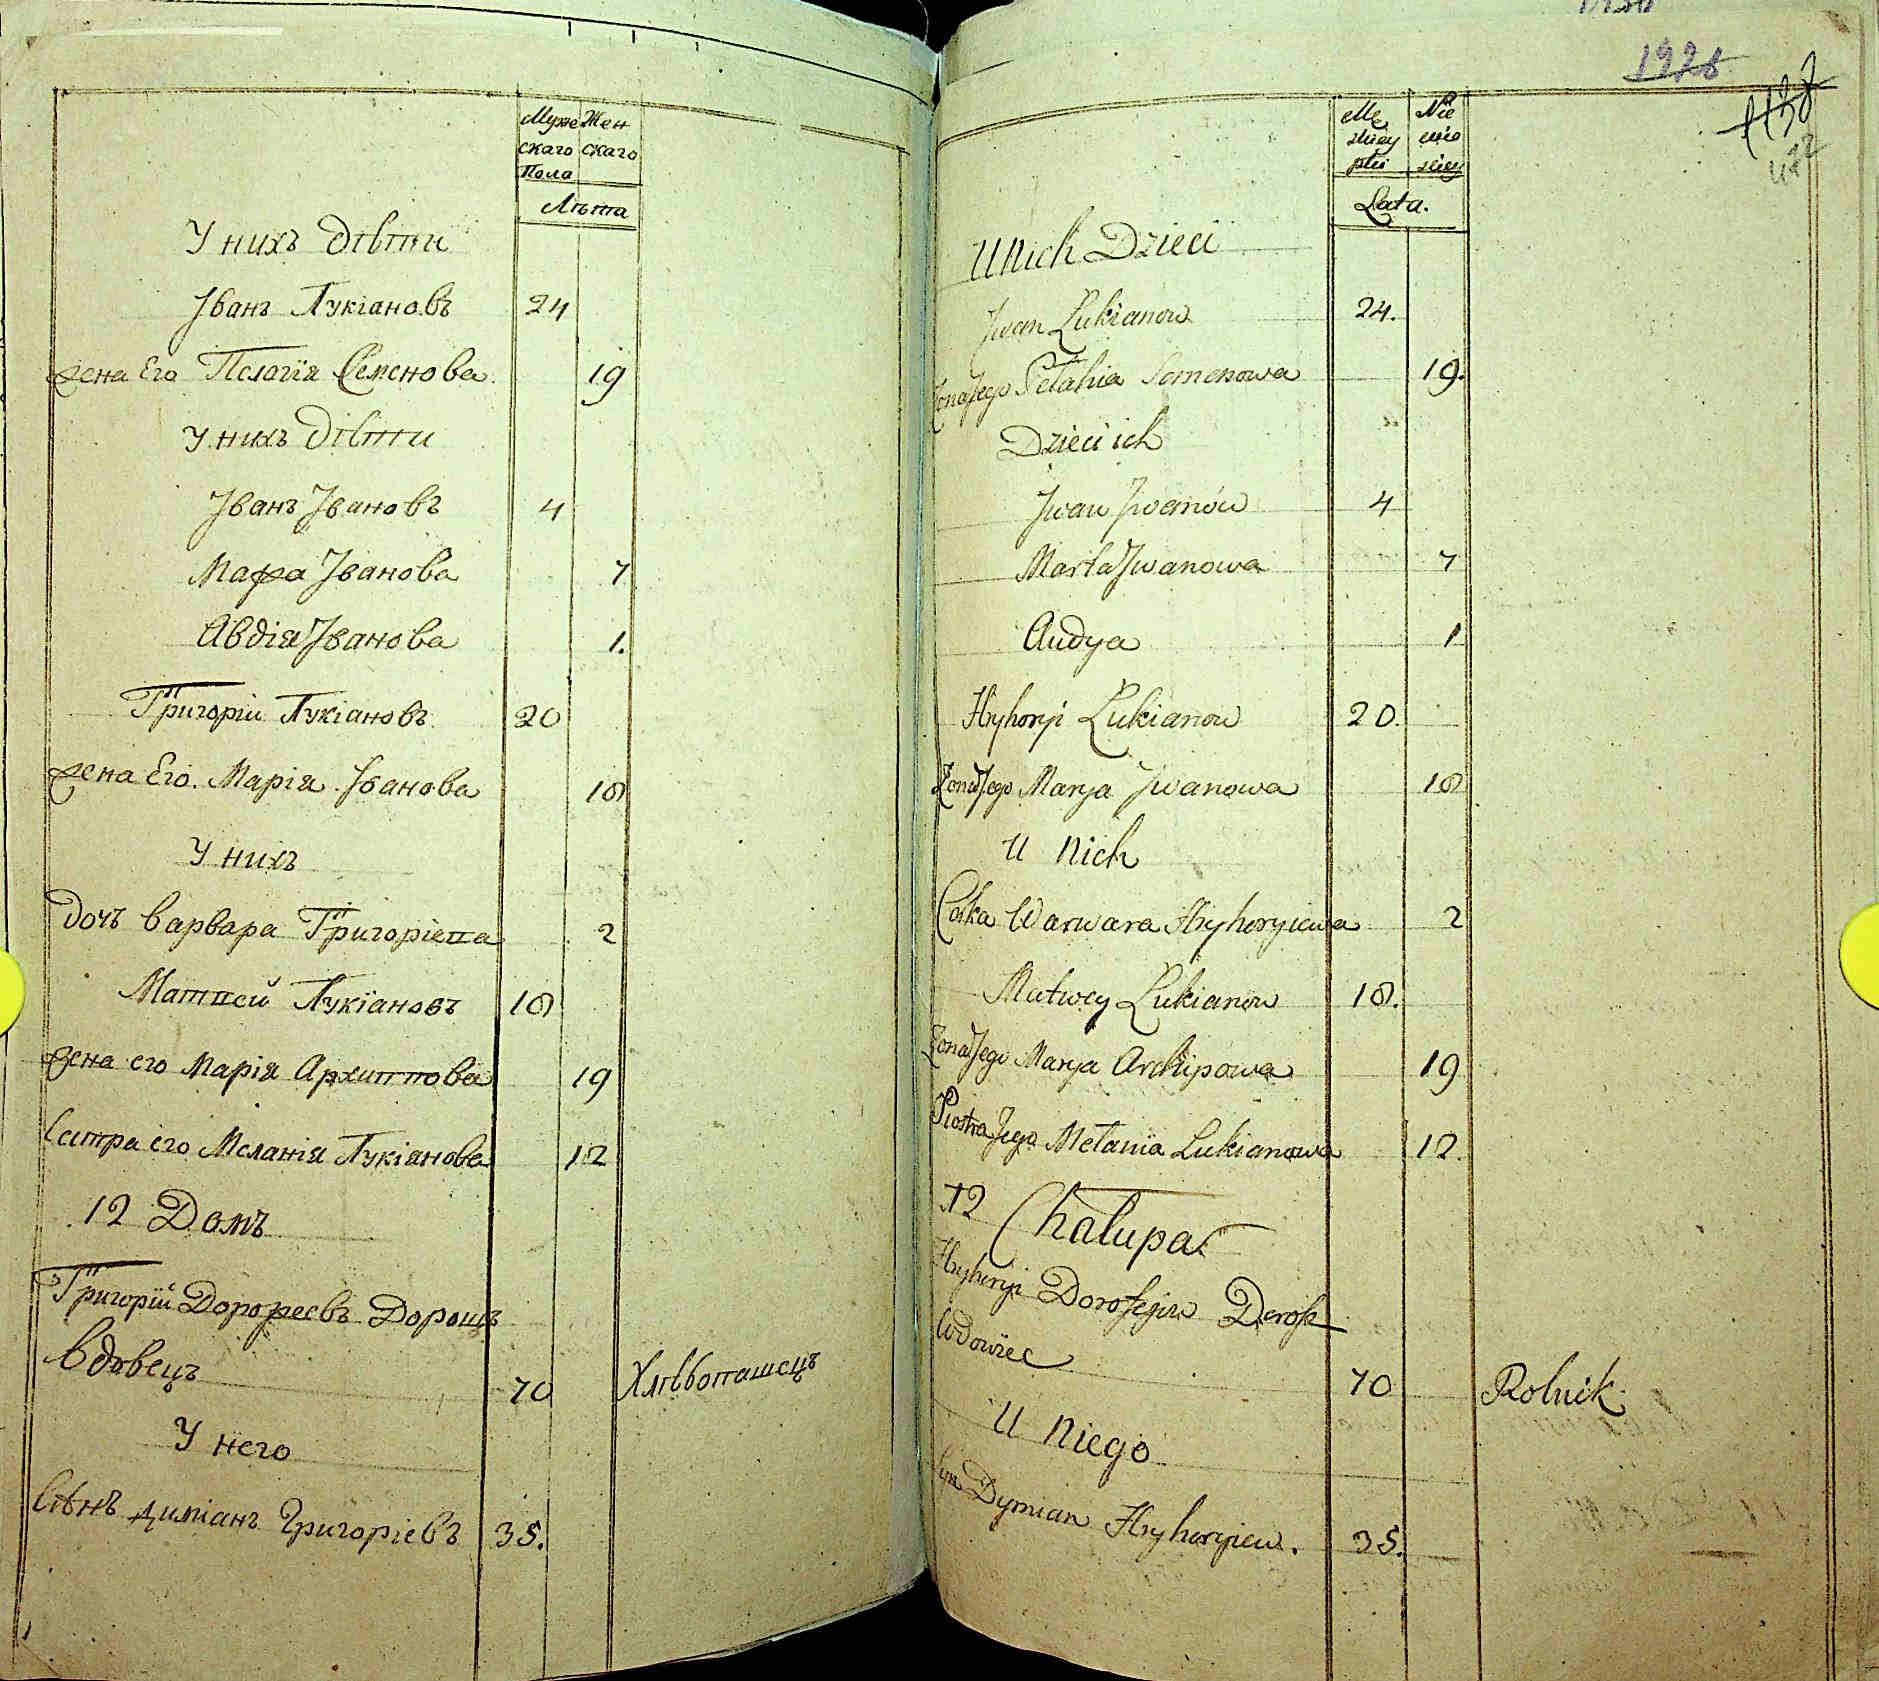 Мужескаго Пола
Женскаго
Лѣта
У нихъ дѣти
Іванъ Лукіановъ 24
жена Его Пелогія Семенова 19
У нихъ дѣти
Іванъ Івановъ 4
Марѳа Іванова 7
Авдія Іванова 1.
Григорій Лукіановъ 20
жена Его. Марія Іванова 18
У нихъ
Дочъ Варвара Григоріева 2
Матвей Лукіановъ 18
жена его Марія Архиппова 19
Сестра его Меланія Лукіанова 12
12 Домъ
Григорій Дороѳеевъ Дорошъ
Вдовецъ 70 Хлѣбопашецъ
У него
Сынъ Диміанъ Григоріевъ 35.
1928
Lata.
U Nich Dzieci
Jwan Łukianow 24.
Żona Jego Pełahia Semenowa 19.
Dzieci ich
Jwan Jwanów 4
Marta Jwanowa 7
Audya 1
Hryhoryi Łukianow 20.
Żona Jego Marya Jwanowa 18
U Nich
Córka Warwara Hryhoryiewa 2
Matwey Łukianow 18.
Żona Jego Marya Archipowa 19
Siostra Jego Mełania Łukianowa 12.
12 Chałupa
Hryhoryi Dorofejew Dorosz
Wdowiec 70 Rolnik
U Niego
Syn Dymian Hryhoryiew. 35.